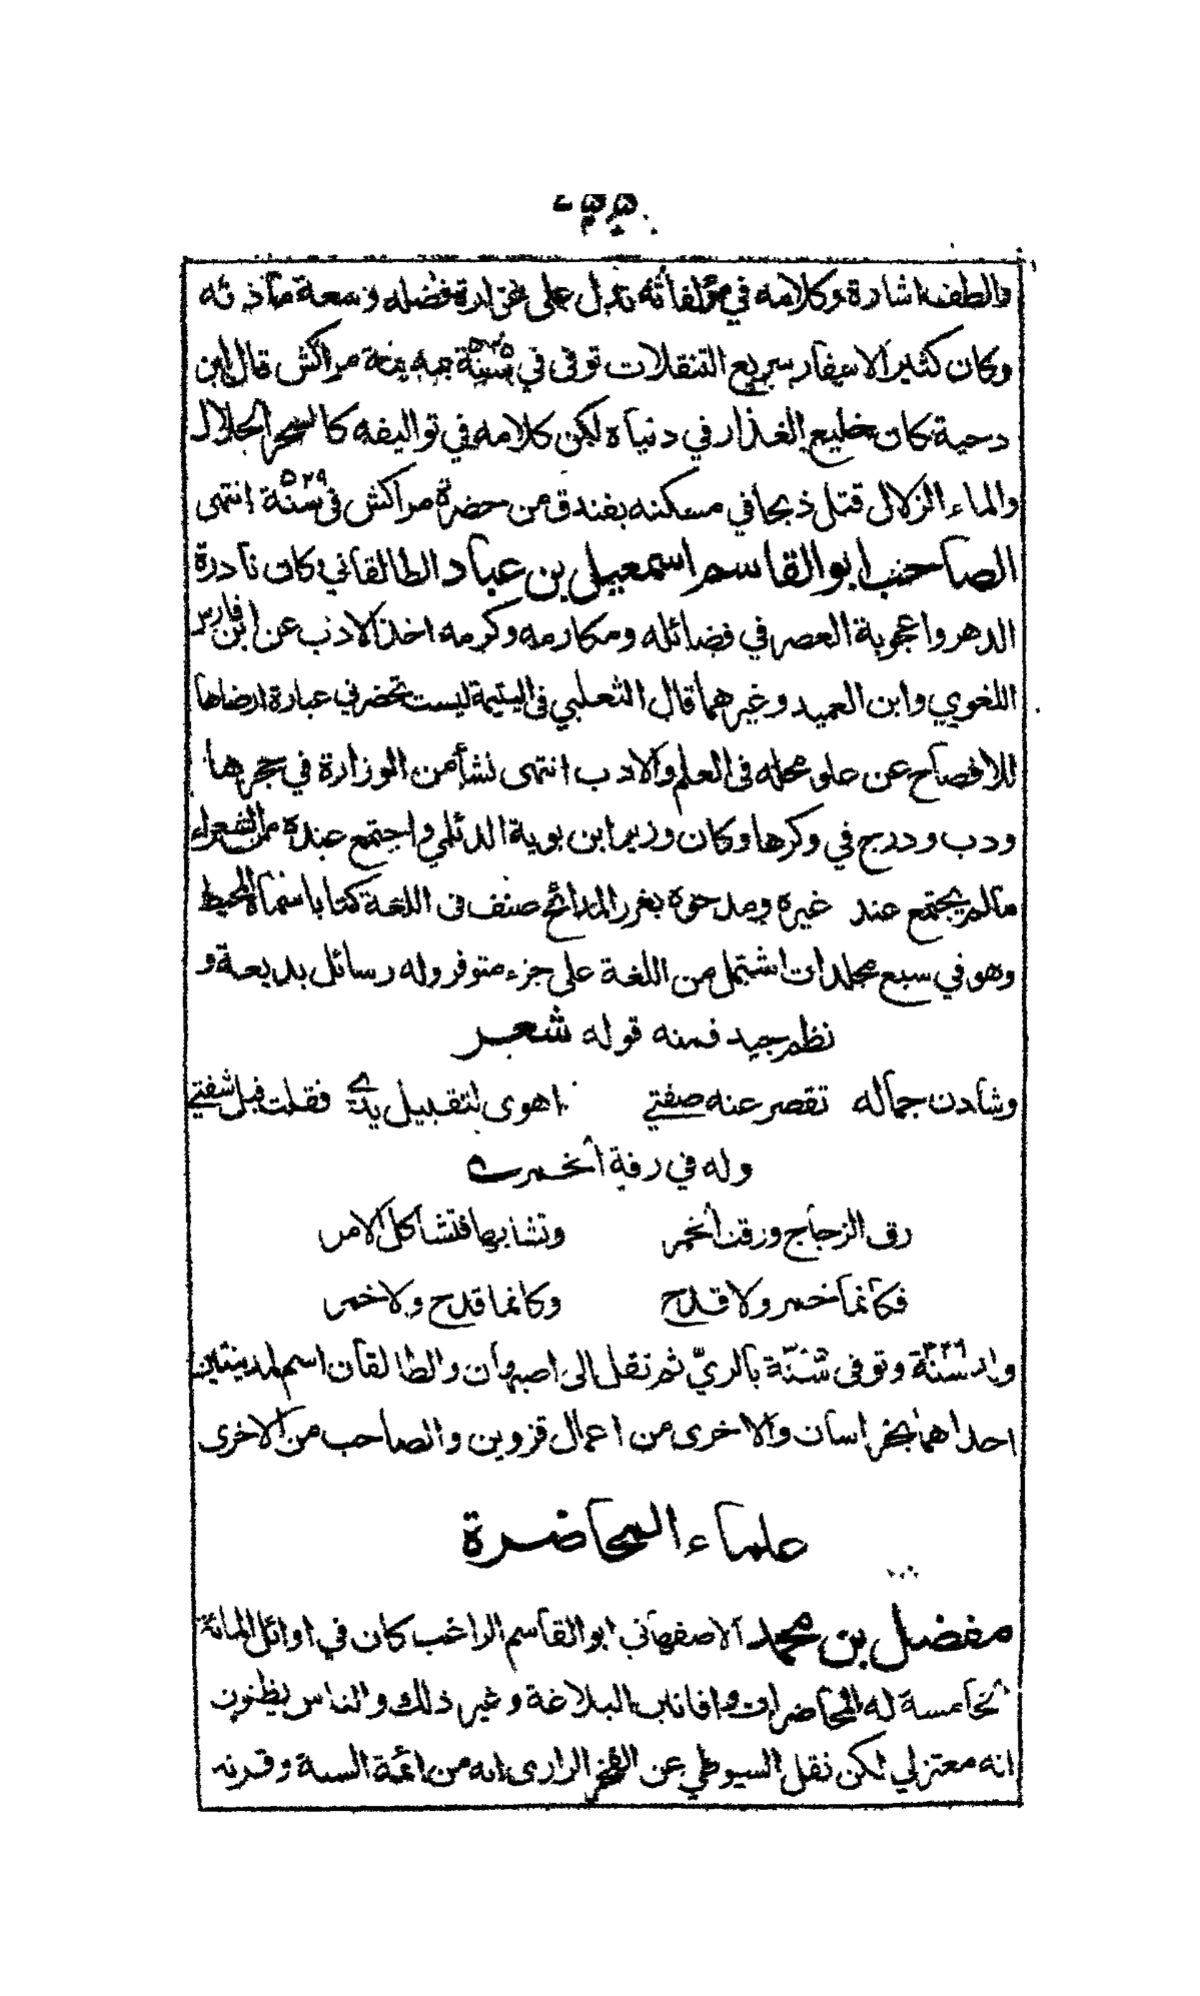 والطف اشارة وكلامه في مؤلفاته تدل على غزارة فضله وسعة مآدته
وكان كثير الاسفار سريع التنقلات توفى في سنة ٥٣٥ بمدينة مراكش قال ابن
دحية كان خليع العذار في دنياه لكن كلامه في تواليفه كالسحر الحلال
والماء الزلال قتل ذبحا في مسكنه بفندق من حضرة مراكش في سنة ٥٢٩ انتهى
الصاحب ابو القاسم اسمعيل بن عباد الطالقاني كان نادرة
الدهر واعجوبة العصر في فضائله ومكارمه وكرمه اخذ الادب عن ابن فارس
اللغوي وابن العميد وغيرهما قال الثعلبي في اليتيمة ليست تحضرني عبارة ارضاها
للافصاح عن علو محله فى العلم والادب انتهى نشأ من الوزارة في حجرها
ودب ودرج في وكرها وكان وزير ابن بوية الدئلمي واجتمع عنده من الشعراء
مالم يجتمع عند غيره ومدحوه بغرر المدائح صنف فى اللغة كتابا اسماه المحيط
وهو في سبع مجلدات اشتمل من اللغة على جزء متوفر وله رسائل بديعة و
نظم جيد فمنه قوله شعر
وشادن جماله تقصر عنه صفتي اهوى لتقبيل يدي فقلت قبل شفتي
وله في رقة الخمر
رق الزجاج ورقت الخمر وتشابها فتشاكل الامر
فكأنما خمر ولا قدح وكانما قدح ولا خمر
ولد سنة ٣٢٦ وتوفى سنة بالريّ ثم نقل الى اصبهان والطالقان اسم لمدينتين
احداهما بخراسان والاخرى من اعمال قزوين والصاحب من الاخرى
علماء المحاضرة
مفضل بن محمد الاصفهاني ابو القاسم الراغب كان في اوائل المائة
الخامسة له المحاضرات وافانين البلاغة وغير ذلك والناس يظنون
انه معتزلي لكن نقل السيوطي عن الفخر الرازى انه من ائمة السنة وقرنه